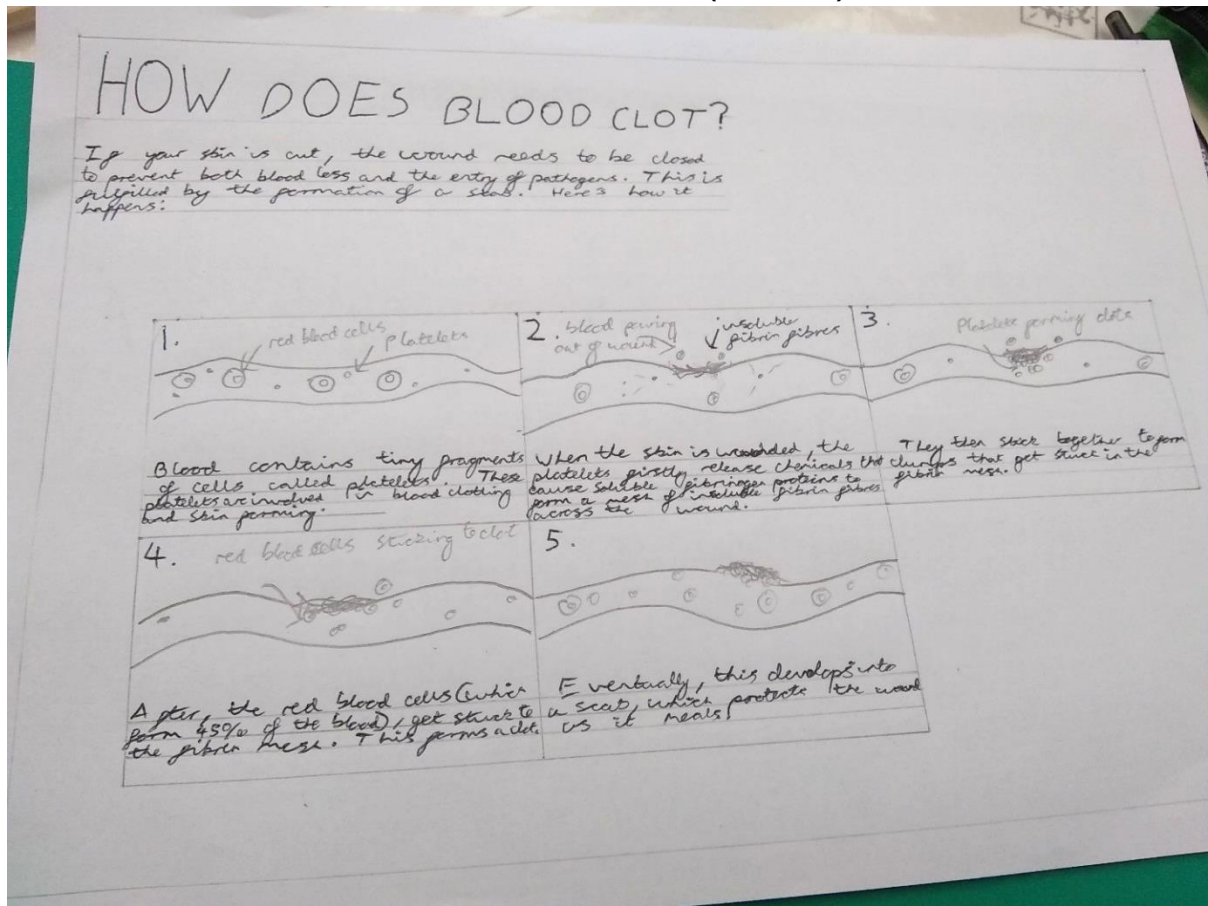 HOW DOES BLOOD CLOT?
If your skin is cut, the wound needs to be closed
to prevent both blood loss and the entry of pathogens. This is
fulfilled by the formation of a scab. Here's how it
happens:
1.
red blood cells
platelets
Blood contains tiny fragments
of cells called platelets. These
platelets are involved in blood clotting
and skin forming.
2.
blood pouring
out of wound
insoluble
fibrin fibres
When the skin is wounded, the
platelets firstly release chemicals that
cause soluble fibrinogen proteins to
form a mesh of insoluble fibrin fibres
across the wound.
3.
Platelets forming clots
They then stick together to form
clumps that get stuck in the
fibrin mesh.
4.
red blood cells sticking to clot
After, the red blood cells (which
form 45% of the blood), get stuck to
the fibrin mesh. This forms a clot.
5.
Eventually, this develops into
a scab, which protects the wound
as it heals.